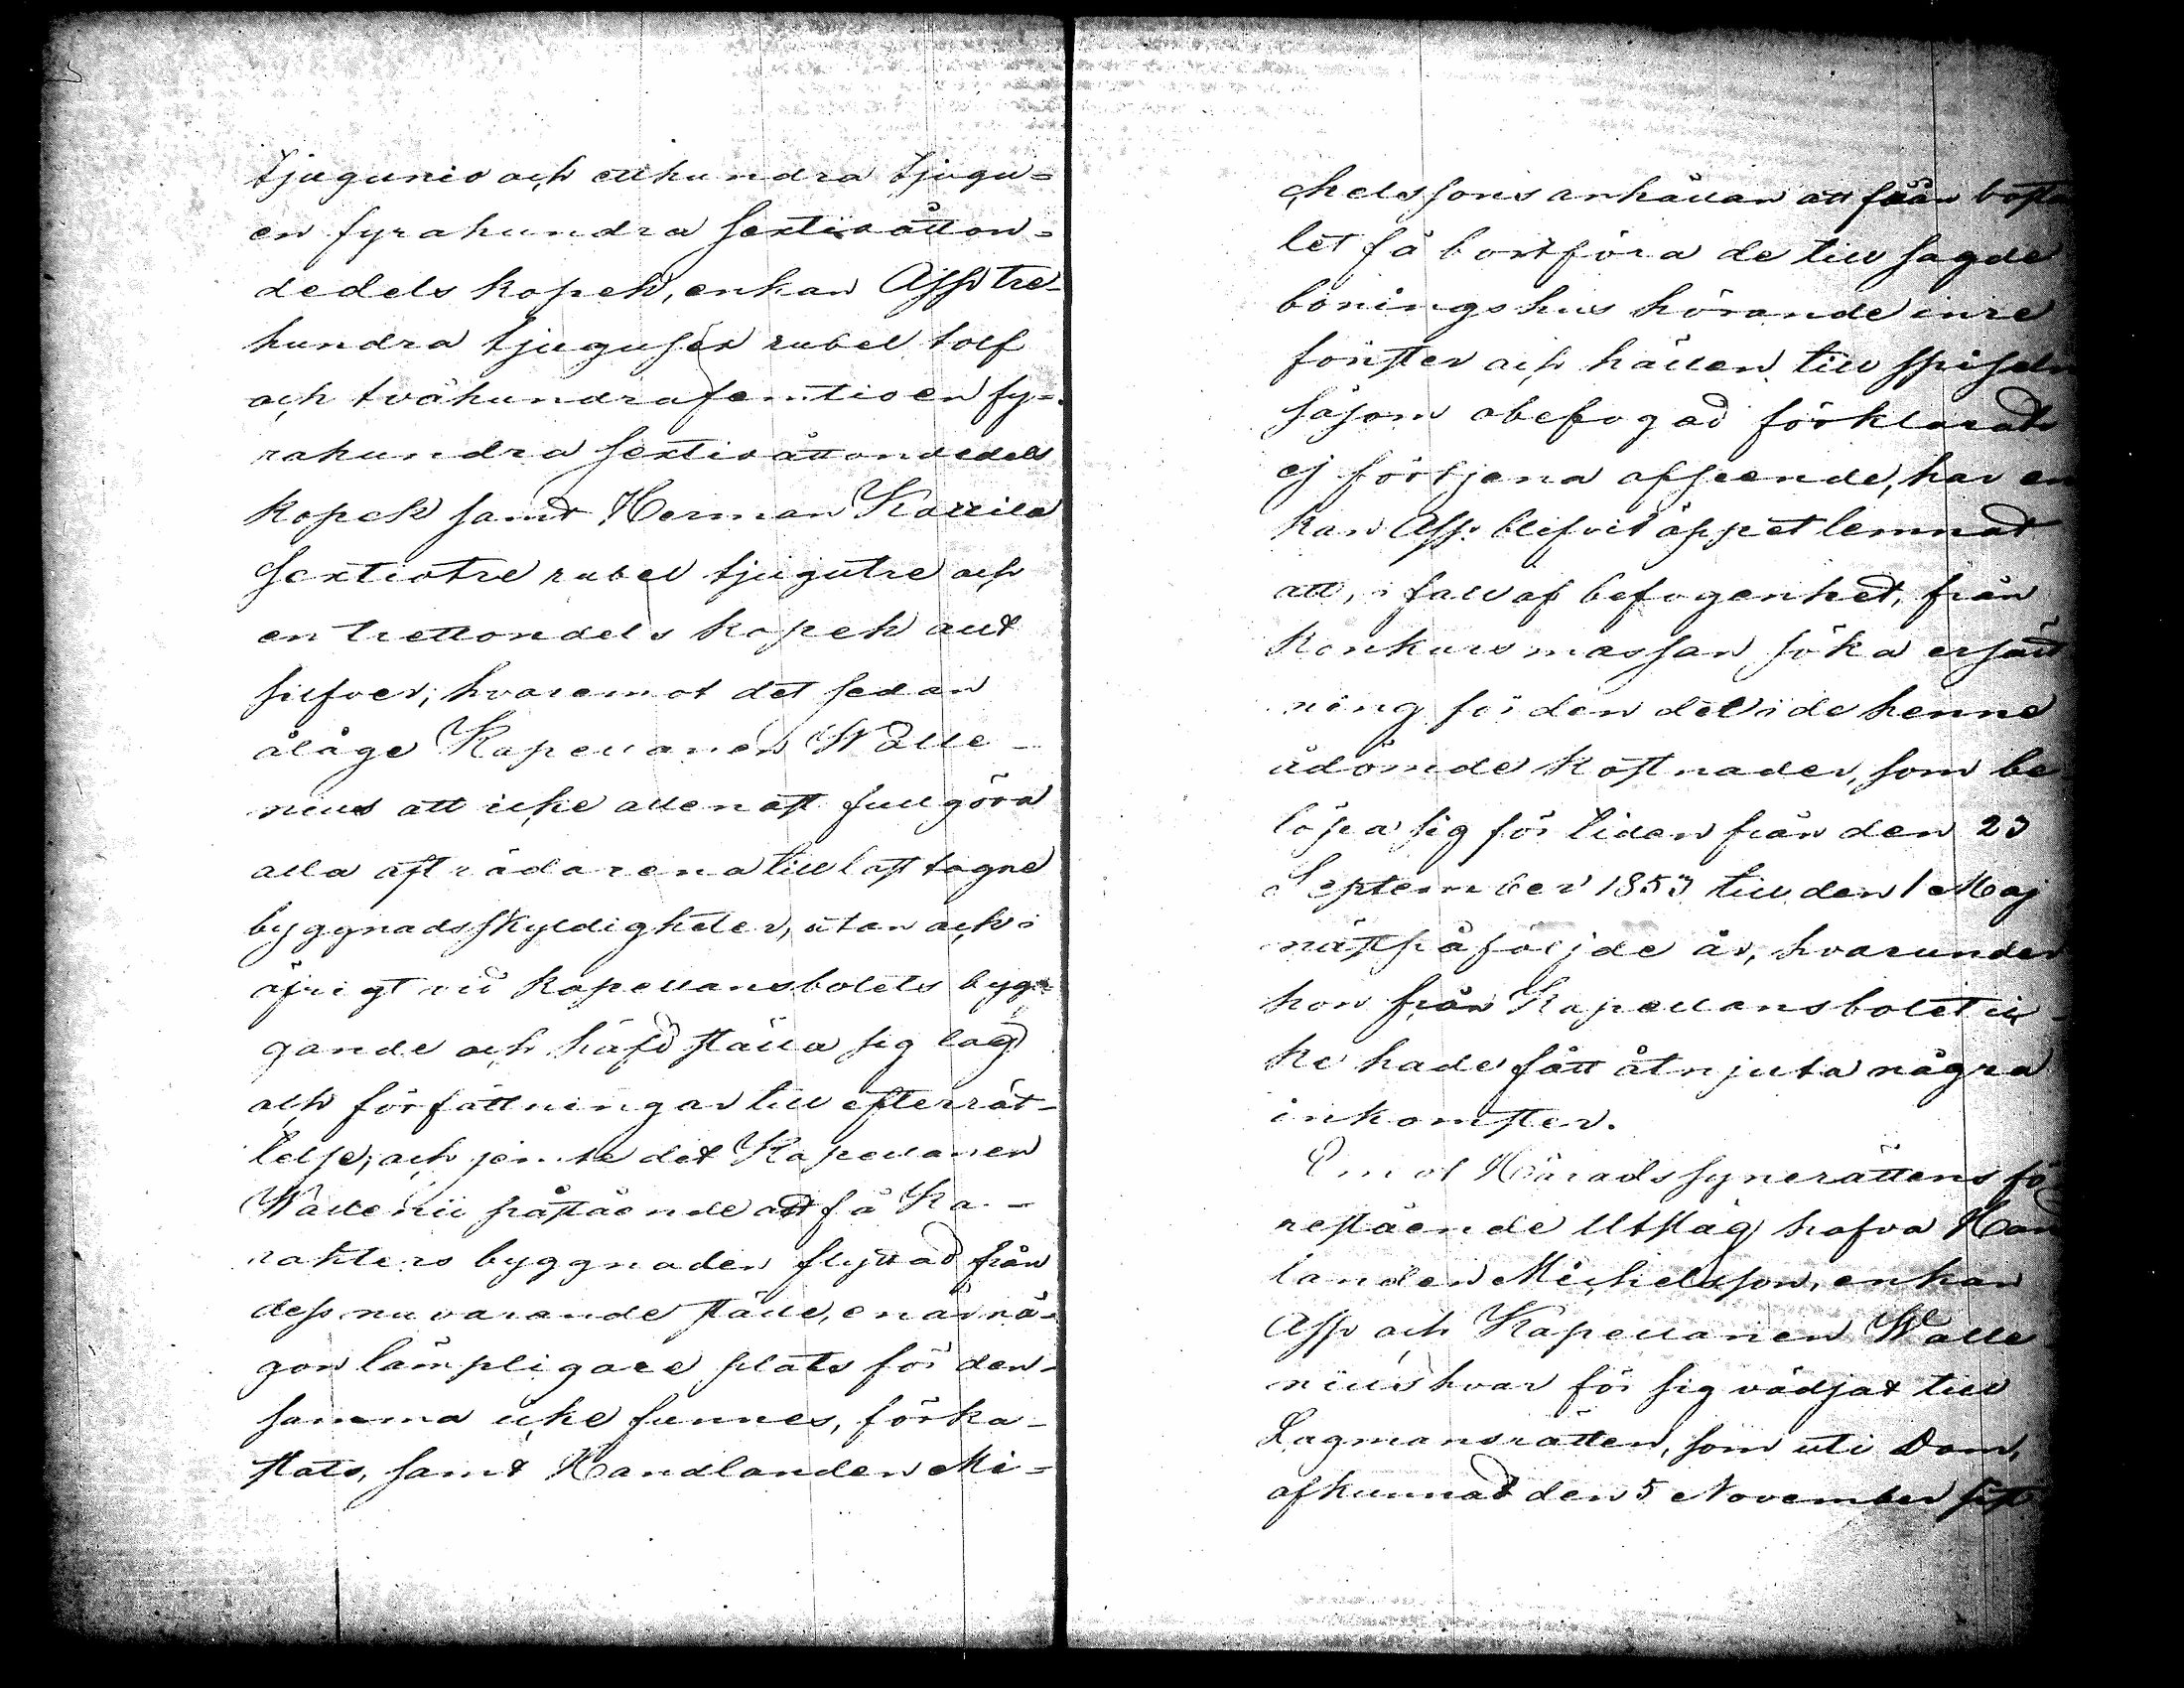 tjugunio och etthundra tjugu-
en fyrahundra sextioåtton-
dedels kopek, enkan Asp tre-
hundra tjugusex rubel tolf
och tvåhundrafemtioen fy-
rahundra sextioåttondedels
kopek samt Herman Kallila
sextiotre rubel tjugutre och
en trettondels kopek allt
silfver; hvaremot det sedan
ålåge Kapellanen Walle-
nius att icke allenast fullgöra
alla afträdarena till last tagne
byggnadsskyldigheter, utan ock i
öfrigt vid kapellansbolets byg-
gande och häfd ställa sig lag
och författningar till efterrät-
telse; och jemte det Kapellanen
Wallenii påstående att få Ka-
rakters byggnaden flyttad från
dess nuvarande ställe, enär nå-
gon lämpligare plats för den-
samma icke funnes, förka-
stats, samt Handlanden Mi-
chelssons anhållan att från bostä
let få bortföra de till sagde
boningshus hörande inre
fönster och hällen till spiseln
såsom obefogad förklarats
ej förtjena afseende, har en
kan Asp blifvit öppet lemnadt
att, i fall af befogenhet, från
Konkursmassan söka ersätt
ning för den del i de henne
ådömde kostnader, som be-
löpa sig för tiden från den 23
September 1853 till den 1 Maj
nästpåföljde år, hvarunder
hon från Kapellansbolet ic-
ke hade fått åtnjuta några
inkomster.
Emot Häradssynerättens fö
restående Utslag hafva Han
landen Michelsson, enkan
Asp och Kapellanen Walle
nius hvar för sig vädjat till
Lagmansrätten, som uti Dom,
afkunnad den 5 November sist